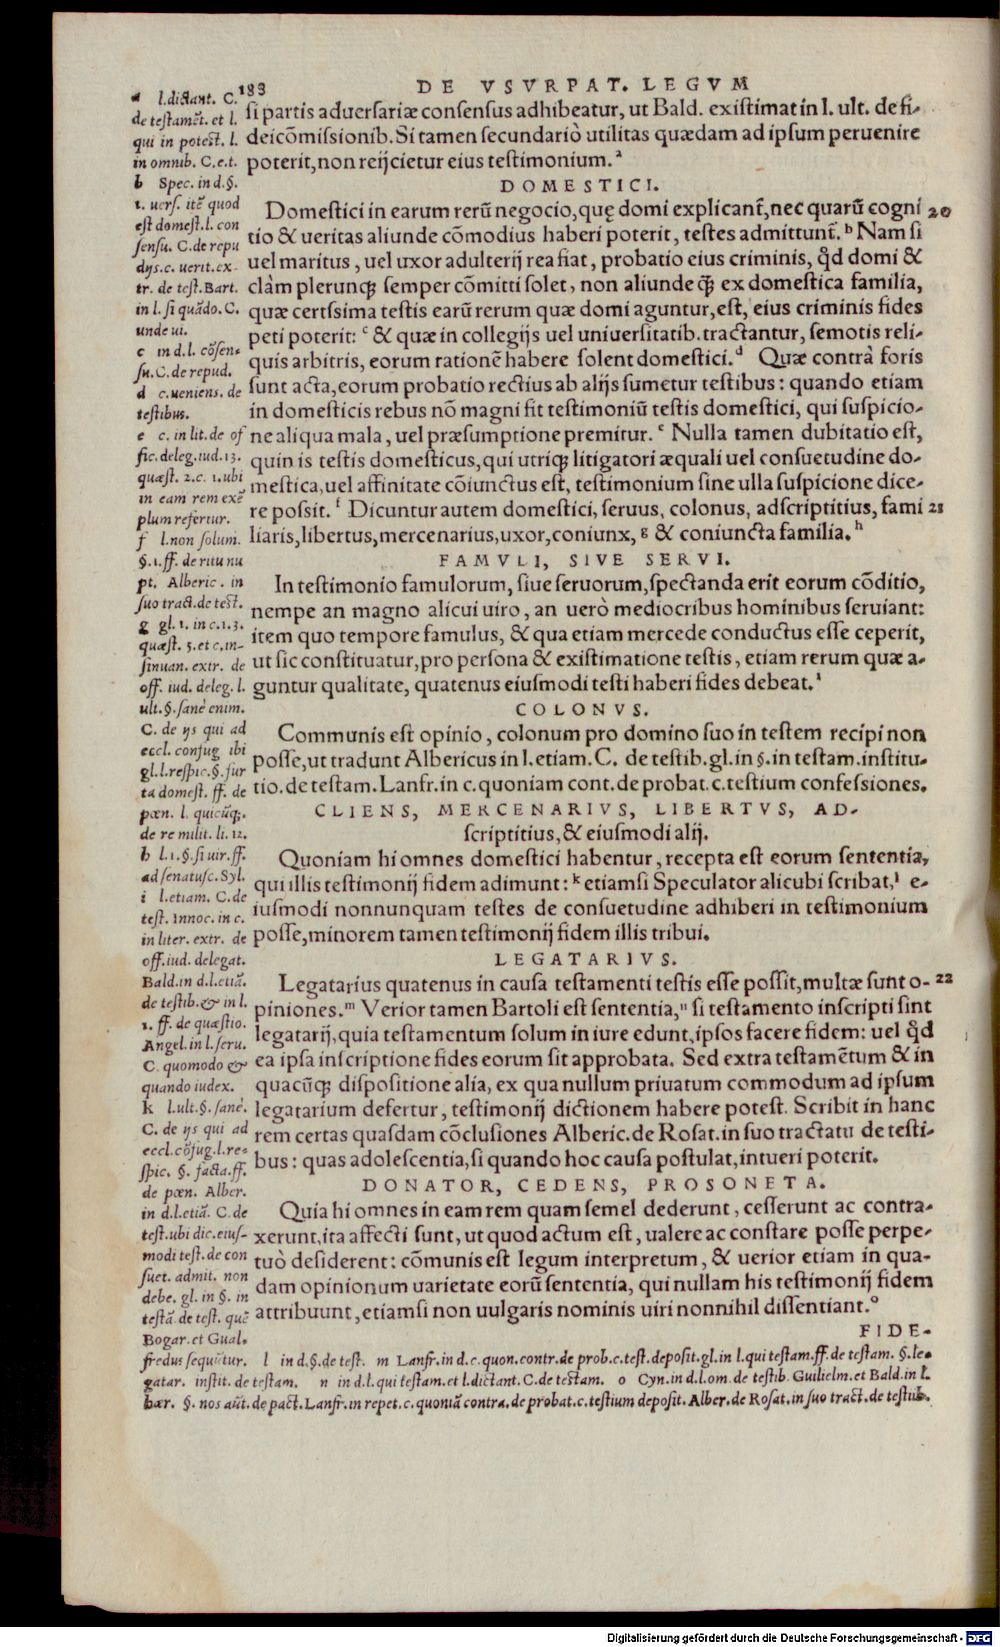 183
DE VSVRPAT. LEGVM
si partis aduersariæ consensus adhibeatur, ut Bald. existimat in l. ult. de fi-
deicōmissionib. Si tamen secundariò utilitas quædam ad ipsum peruenire
poterit, non reijcietur eius testimonium.ᵃ
DOMESTICI.
Domestici in earum rerū negocio, quę domi explicant̃, nec quarū cogni 20
tio & ueritas aliunde cōmodius haberi poterit, testes admittunt̃.ᵇ Nam si
uel maritus, uel uxor adulterij rea fiat, probatio eius criminis, q̊d domi &
clàm plerunq; semper cōmitti solet, non aliunde q̃ ex domestica familia,
quæ certissima testis earū rerum quæ domi aguntur, est, eius criminis fides
peti poterit: ᶜ & quæ in collegijs uel uniuersitatib. tractantur, semotis reli-
quis arbitris, eorum rationē habere solent domestici.ᵈ Quæ contrà foris
sunt acta, eorum probatio rectius ab alijs sumetur testibus: quando etiam
in domesticis rebus nō magni fit testimoniū testis domestici, qui suspicio-
ne aliqua mala, uel præsumptione premitur.ᵉ Nulla tamen dubitatio est,
quin is testis domesticus, qui utriq; litigatori æquali uel consuetudine do-
mestica, uel affinitate cōiunctus est, testimonium sine ulla suspicione dice-
re possit.ᶠ Dicuntur autem domestici, seruus, colonus, adscriptitius, fami 21
liaris, libertus, mercenarius, uxor, coniunx, ᵍ & coniuncta familia.ʰ
FAMVLI, SIVE SERVI.
In testimonio famulorum, siue seruorum, spectanda erit eorum cōditio,
nempe an magno alicui uiro, an uerò mediocribus hominibus seruiant:
item quo tempore famulus, & qua etiam mercede conductus esse ceperit,
ut sic constituatur, pro persona & existimatione testis, etiam rerum quæ a-
guntur qualitate, quatenus eiusmodi testi haberi fides debeat.ⁱ
COLONVS.
Communis est opinio, colonum pro domino suo in testem recipi non
posse, ut tradunt Albericus in l. etiam. C. de testib. gl. in §. in testam. institu-
tio. de testam. Lanfr. in c. quoniam cont. de probat. c. testium confessiones.
CLIENS, MERCENARIVS, LIBERTVS, AD-
scriptitius, & eiusmodi alij.
Quoniam hi omnes domestici habentur, recepta est eorum sententia,
qui illis testimonij fidem adimunt: ᵏ etiamsi Speculator alicubi scribat,ˡ e-
iusmodi nonnunquam testes de consuetudine adhiberi in testimonium
posse, minorem tamen testimonij fidem illis tribui.
LEGATARIVS.
Legatarius quatenus in causa testamenti testis esse possit, multæ sunt o- 22
piniones.ᵐ Verior tamen Bartoli est sententia,ⁿ si testamento inscripti sint
legatarij, quia testamentum solum in iure edunt, ipsos facere fidem: uel q̊d
ea ipsa inscriptione fides eorum sit approbata. Sed extra testamētum & in
quacūq; dispositione alia, ex qua nullum priuatum commodum ad ipsum
legatarium defertur, testimonij dictionem habere potest. Scribit in hanc
rem certas quasdam cōclusiones Alberic. de Rosat. in suo tractatu de testi-
bus: quas adolescentia, si quando hoc causa postulat, intueri poterit.
DONATOR, CEDENS, PROSONETA.
Quia hi omnes in eam rem quam semel dederunt, cesserunt ac contra-
xerunt, ita affecti sunt, ut quod actum est, ualere ac constare posse perpe-
tuò desiderent: cōmunis est legum interpretum, & uerior etiam in qua-
dam opinionum uarietate eorū sententia, qui nullam his testimonij fidem
attribuunt, etiamsi non uulgaris nominis uiri nonnihil dissentiant.ᵒ
FIDE-
a l. dictant. C.
de testamēt. et l.
qui in potest. l.
in omnib. C.e.t.
b Spec. in d.§.
1. uers. itē quod
est domest. l. con
sensu. C. de repu
dijs. c. uerit. ex-
tr. de test. Bart.
in l. si quādo. C.
unde ui.
c in d. l. cōsen-
su. C. de repud.
d c. ueniens. de
testibus.
e c. in lit. de of
fic. deleg. iud. 13.
quæst. 2. c. 1. ubi
in eam rem exē
plum refertur.
f l. non solum.
§. 1. ff. de ritu nu
pt. Alberic. in
suo tract. de test.
g gl. 1. in c. 1. 3.
quæst. 5. et c. in-
sinuan. extr. de
off. iud. deleg. l.
ult. §. sanè enim.
C. de ijs qui ad
eccl. confug ibi
gl. l. respic. §. fur
ta domest. ff. de
pœn. l. quicūq;.
de re milit. li. 12.
h l. 1. §. si uir. ff.
ad senatusc. Syl.
i l. etiam. C. de
test. Innoc. in c.
in liter. extr. de
off. iud. delegat.
Bald. in d. l. etiā.
de testib. & in l.
1. ff. de quæstio.
Angel. in l. seru.
C. quomodo &
quando iudex.
k l. ult. §. sanè.
C. de ijs qui ad
eccl. cōfug. l. re-
spic. §. facta. ff.
de pœn. Alber.
in d. l. etiā. C. de
test. ubi dic. eius-
modi test. de con
suet. admit. non
debe. gl. in §. in
testā. de test. quē
Bogar. et Gual-
fredus sequūtur. l in d. §. de test. m Lanfr. in d. c. quon. contr. de prob. c. test. deposit. gl. in l. qui testam. ff. de testam. §. le-
gatar. instit. de testam. n in d. l. qui testam. et l. dictant. C. de testam. o Cyn. in d. l. om. de testib. Guilielm. et Bald. in l.
hær. §. nos aūt. de pact. Lanfr. in repet. c. quoniā contra. de probat. c. testium deposit. Alber. de Rosat. in suo tract. de testib.
Digitalisierung gefördert durch die Deutsche Forschungsgemeinschaft - DFG